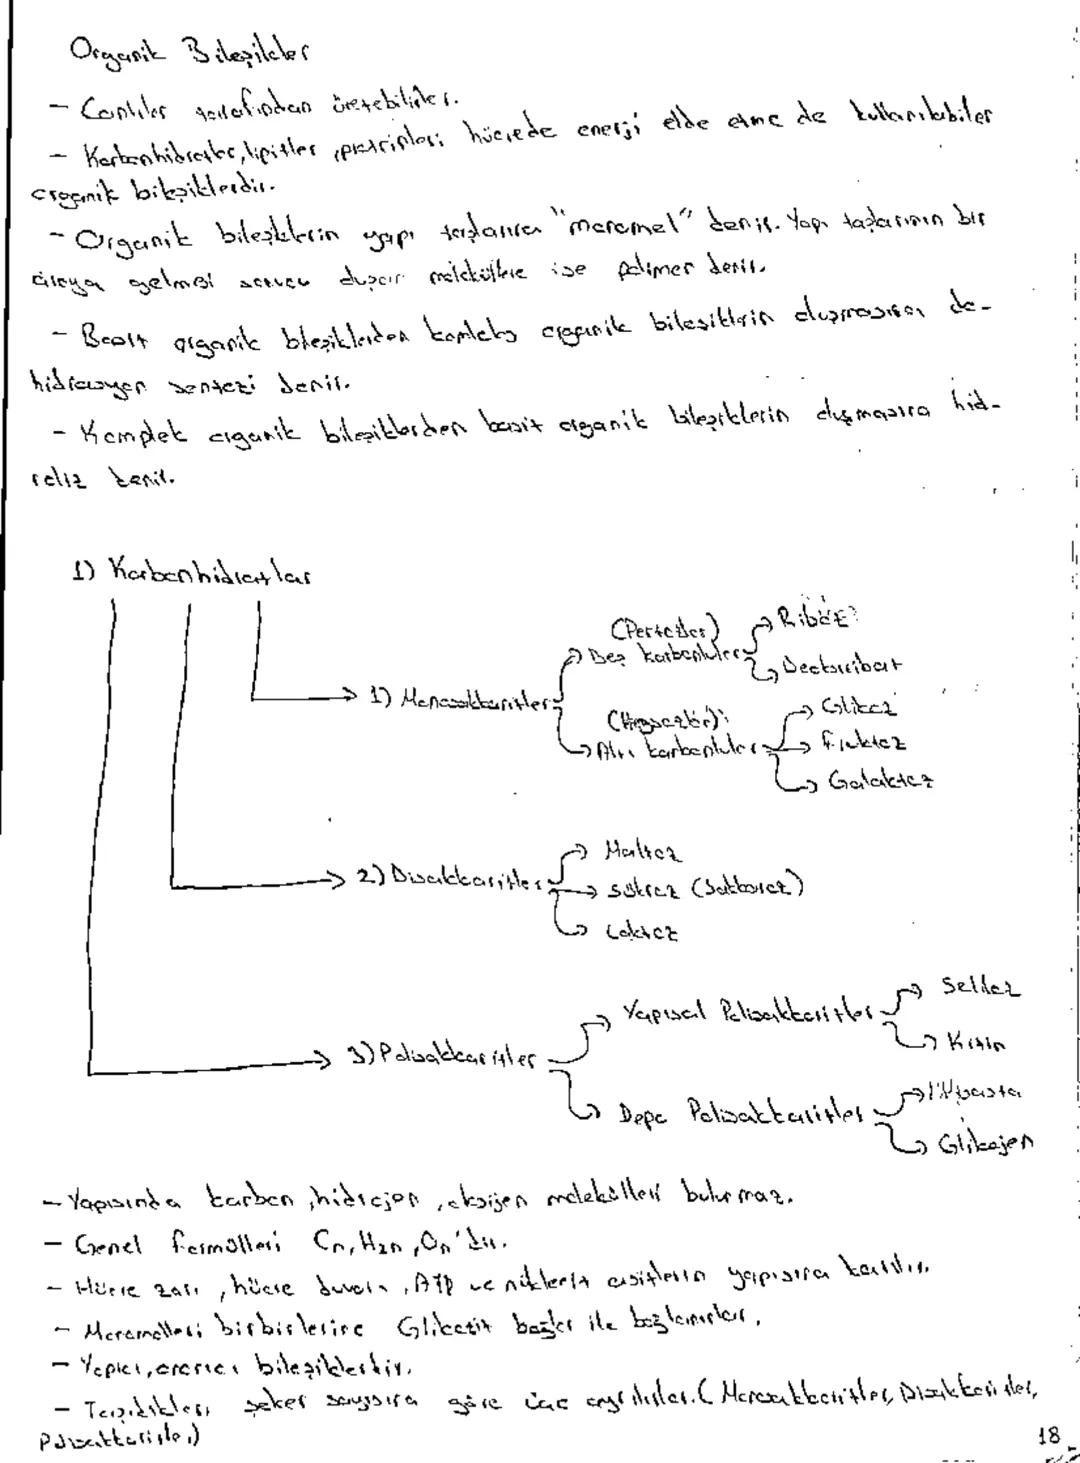 Organik Bileşikler
- Canlılar tarafından üretebilirler.
- Karbonhidratlar, lipitler, proteinleri hücrede enerji elde etme de kullanılabilen
organik bileşiklerdir.
- Organik bileşiklerin yapı taşlarına "monomel" denir. Yapı taşlarının bir
araya gelmesi sonucu oluşan moleküllere ise polimer denir.
- Basit organik bileşiklerden kompleks organik bileşiklerin oluşmasına de-
hidrasyon sentezi denir.
- Komplek organik bileşiklerden basit organik bileşiklerin oluşmasına hid-
roliz denir.
1) Karbonhidratlar
(Pentozlar)
Beş karbonlular
Riboz
Deoksiriboz
1) Monosakkaritler
(Heksozlar)
Altı karbonlular
Glikoz
Fruktoz
Galaktoz
2) Disakkaritler
Maltoz
Sükroz (Sakkaroz)
Laktoz
3) Polisakkaritler
Yapısal Polisakkaritler
Selüloz
Kitin
Depo Polisakkaritler
Nişasta
Glikojen
- Yapısında karbon, hidrojen, oksijen molekülleri bulunmaz.
- Genel formülleri Cn, H2n, On'dir.
- Hücre zarı, hücre duvarı, ATP ve nükleit asitlerin yapısına katılır.
- Monomelleri birbirlerine Glikozit bağlar ile bağlanırlar.
- Yapıcı, onarıcı bileşiklerdir.
- Taşıdıkları şeker sayısına göre üçe ayrılırlar. (Monosakkaritler, Disakkaritler,
Polisakkaritler)
18